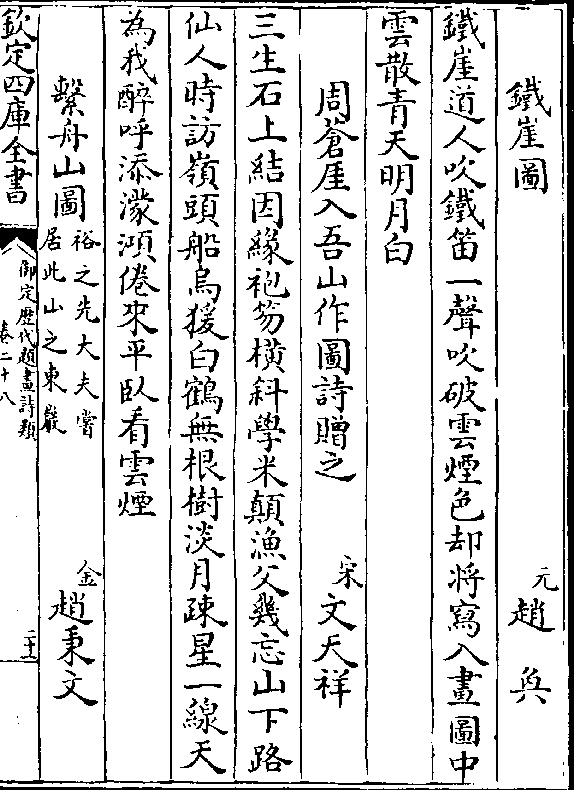 鐵崖圖 元 趙奕
鐵崖道人吹鐵笛一聲吹破雲煙色却將寫入畫圖中
雲散青天明月白
周蒼厓入吾山作圖詩贈之 宋 文天祥
三生石上結因緣袍笏橫斜學米顛漁父幾忘山下路
仙人時訪嶺頭船烏猨白鶴無根樹淡月疎星一線天
為我醉呼添濛澒倦來平臥看雲煙
繫舟山圖 裕之先大夫嘗居此山之東巖 金 趙秉文
欽定四庫全書
御定歷代題畫詩類
卷二十八
二十